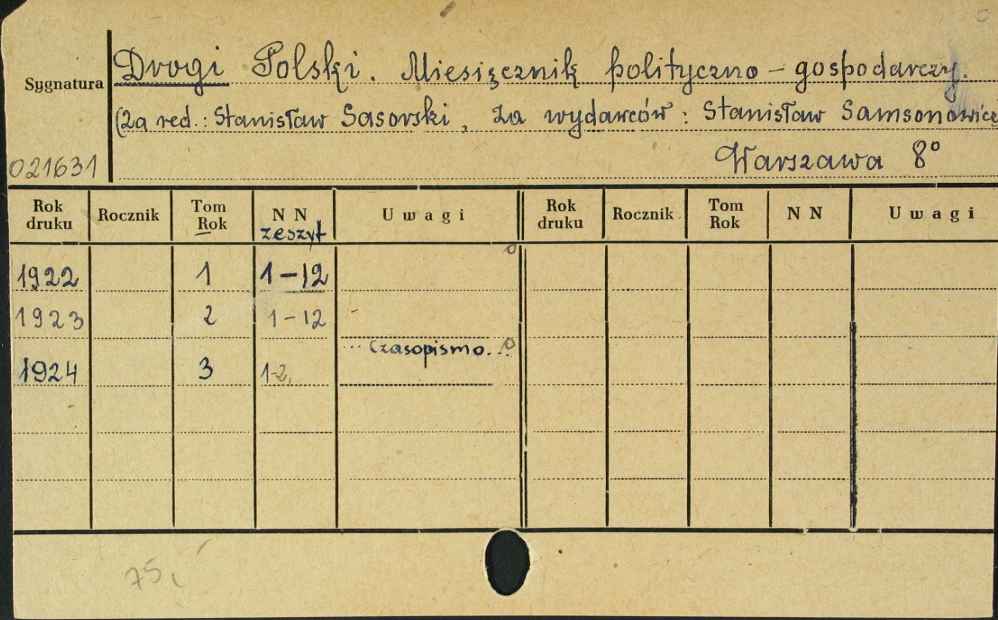 Drogi Polski. Miesięcznik polityczno-gospodarczy.
Sygnatura
(Za red.: Stanisław Sasorski, Za wydawców: Stanisław Samsonowicz
021631
Warszawa 8°
Rok druku Rocznik Tom Rok NN zeszyt Uwagi Rok druku Rocznik Tom Rok NN Uwagi
1922 1 1-12
1923 2 1-12
Czasopismo.
1924 3 1-2,
75